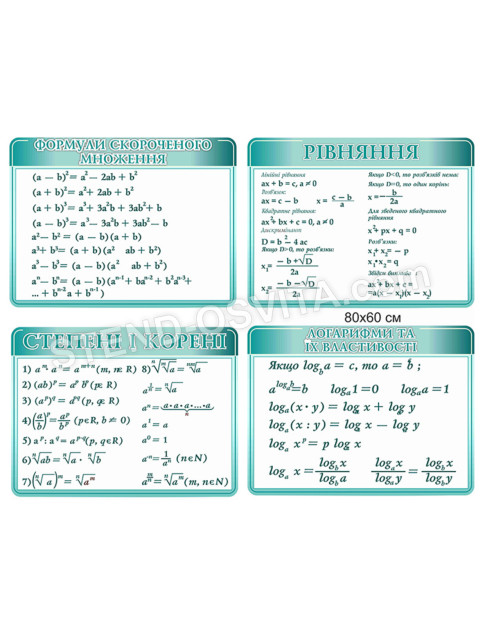 ФОРМУЛИ СКОРОЧЕНОГО
МНОЖЕННЯ
(a — b)²= a²— 2ab + b²
(a + b)²= a²+ 2ab + b²
(a + b)³= a³+ 3a²b + 3ab²+ b
(a — b)³= a³— 3a²b + 3ab²— b
a²— b²= (a — b)(a + b)
a³+ b³= (a + b)(a² ab + b²)
a³— b³= (a — b)(a² ab + b²)
aⁿ— bⁿ= (a — b)(aⁿ⁻¹+ baⁿ⁻²+ b²aⁿ⁻³+
... + bⁿ⁻²a + bⁿ⁻¹)
РІВНЯННЯ
Лінійні рівняння
ax + b = c, a ≠ 0
Розв'язок:
ax = c — b x = (c — b)/a
Квадратне рівняння:
ax²+ bx + c = 0, a ≠ 0
Дискримінант
D = b²— 4 ac
Якщо D>0, то розв'язки:
x₁= (— b + √D)/2a
x₂= (— b — √D)/2a
Якщо D<0, то розв'язків немає:
Якщо D=0, то один корінь:
x = — b/2a
Для зведеного квадратного
рівняння
x²+ px + q = 0
Розв'язки:
x₁+ x₂= — p
x₁•x₂= q
ax + bx + c =
=a(x — x₁)(x — x₂)
80х60 см
СТЕПЕНІ І КОРЕНІ
2) (ab)ᵖ = aᵖ bᵖ (p∈ R)
3) (aᵖ)^q = a^pq (p, q∈ R)
4) (a/b)ᵖ = aᵖ/bᵖ (p∈R, b ≠ 0)
5) aᵖ : a^q = aᵖ⁻^q (p, q∈R)
6) ⁿ√ab = ⁿ√a · ⁿ√b
7) (ⁿ√a)ᵐ = ⁿ√aᵐ
8) ᵐ√ⁿ√a = ⁿᵐ√a
a^(1/n) = ⁿ√a
aⁿ= a • a • a •...• a
a¹ = a
a⁰ = 1
a⁻ⁿ= 1/aⁿ (n∈N)
a^(m/n) = ⁿ√aᵐ (m, n∈N)
ЛОГАРИФМИ ТА
ЇХ ВЛАСТИВОСТІ
Якщо log_b a = c, то a = bᶜ ;
a^(log b)=b log_a 1=0 log_a a = 1
log_a (x · y) = log x + log y
log_a (x : y) = log x — log y
log_a xᵖ = p log x
log_a x = log_b x/log_b a log_a x/log_a y = log_b x/log_b y
STEND-OSVITA.com